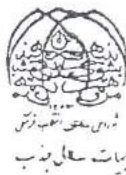 شورای عالی انقلاب فرهنگی
هیات عالی جذب